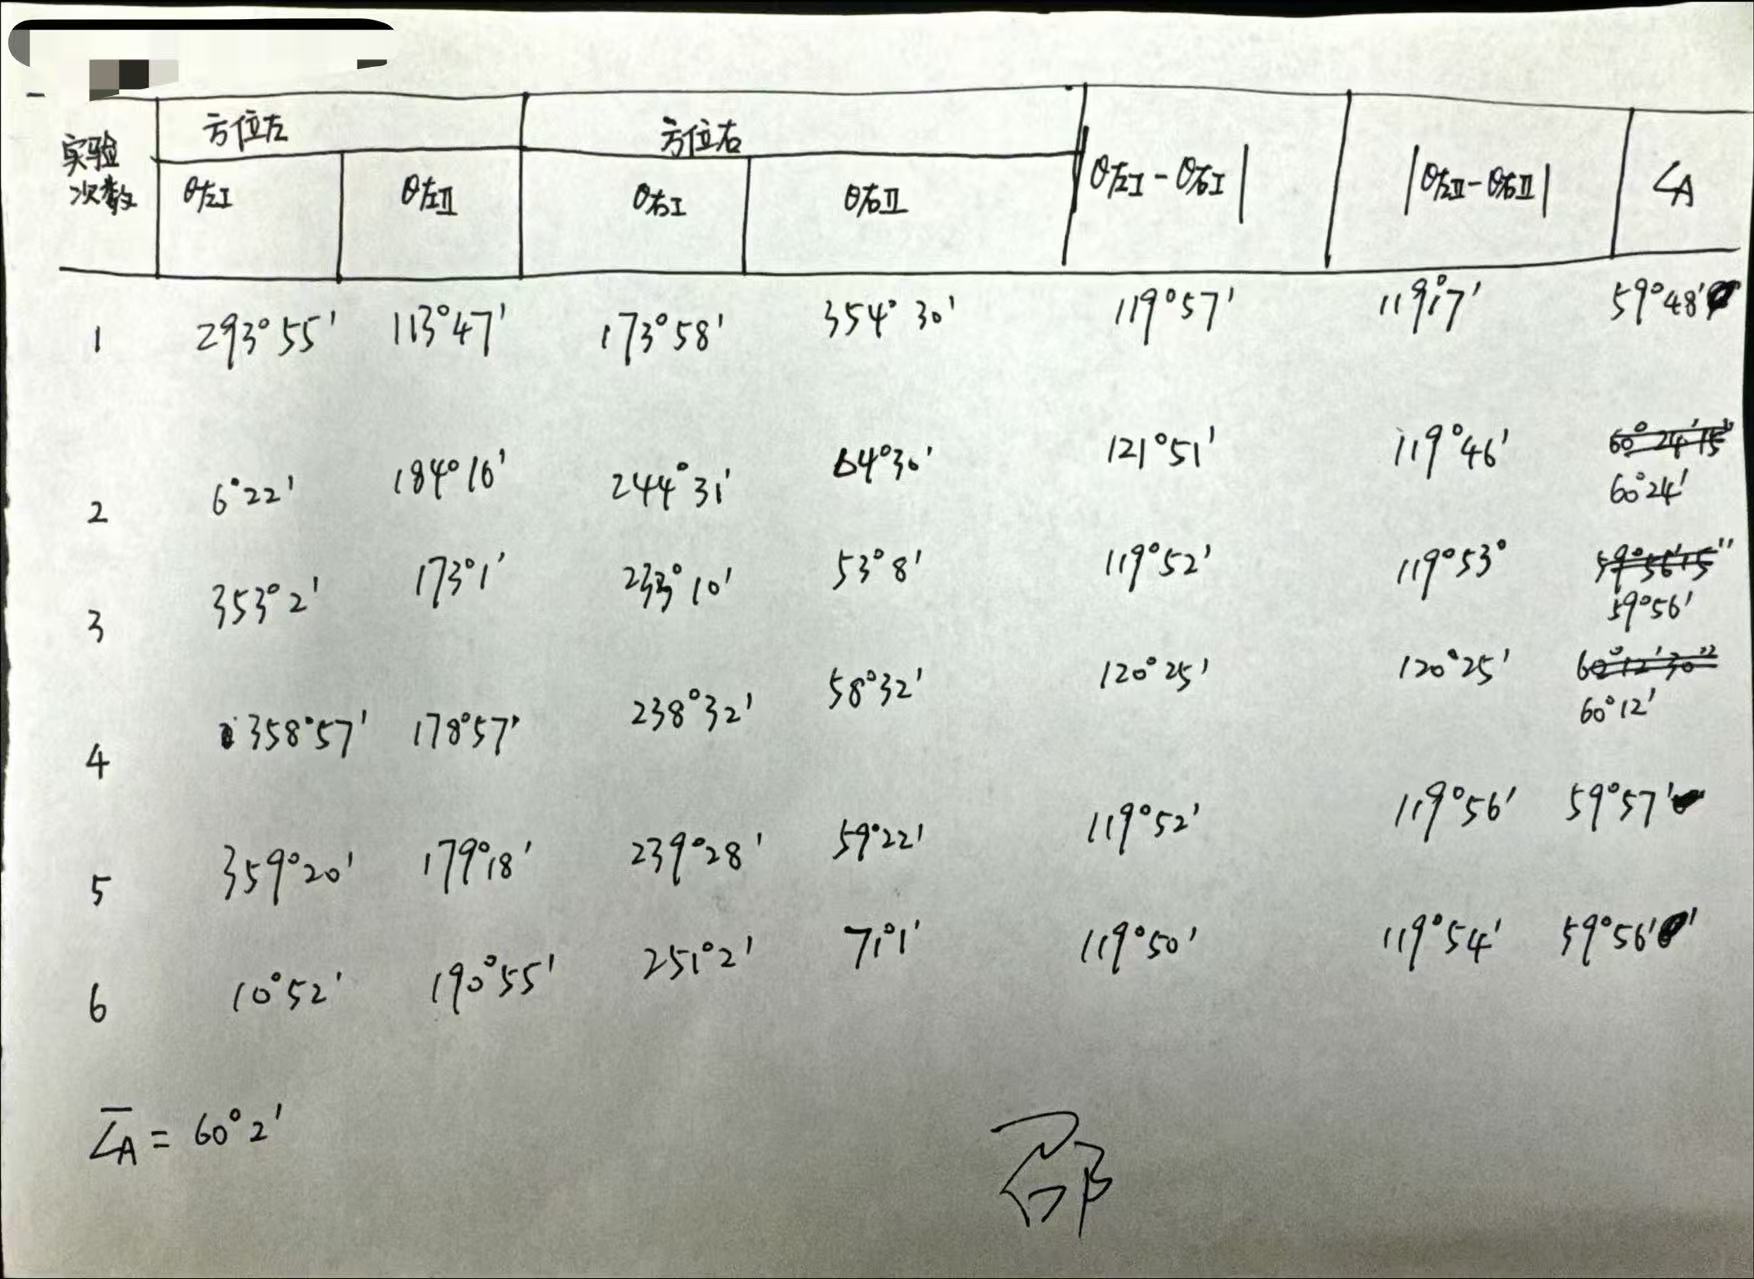 实验次数 方位左 方位右 |θ左I-θ右I| |θ左II-θ右II| ∠A
θ左I θ左II θ右I θ右II
1 293°55' 113°47' 173°58' 354°30' 119°57' 119°17' 59°48'
2 6°22' 184°16' 244°31' 64°30' 121°51' 119°46' 60°24'15" 60°24'
3 353°2' 173°1' 233°10' 53°8' 119°52' 119°53° 59°56'15" 59°56'
4 358°57' 178°57' 238°32' 58°32' 120°25' 120°25' 60°12'30" 60°12'
5 359°20' 179°18' 239°28' 59°22' 119°52' 119°56' 59°57'
6 10°52' 190°55' 251°2' 71°1' 119°50' 119°54' 59°56'
∠A = 60°2'
邵